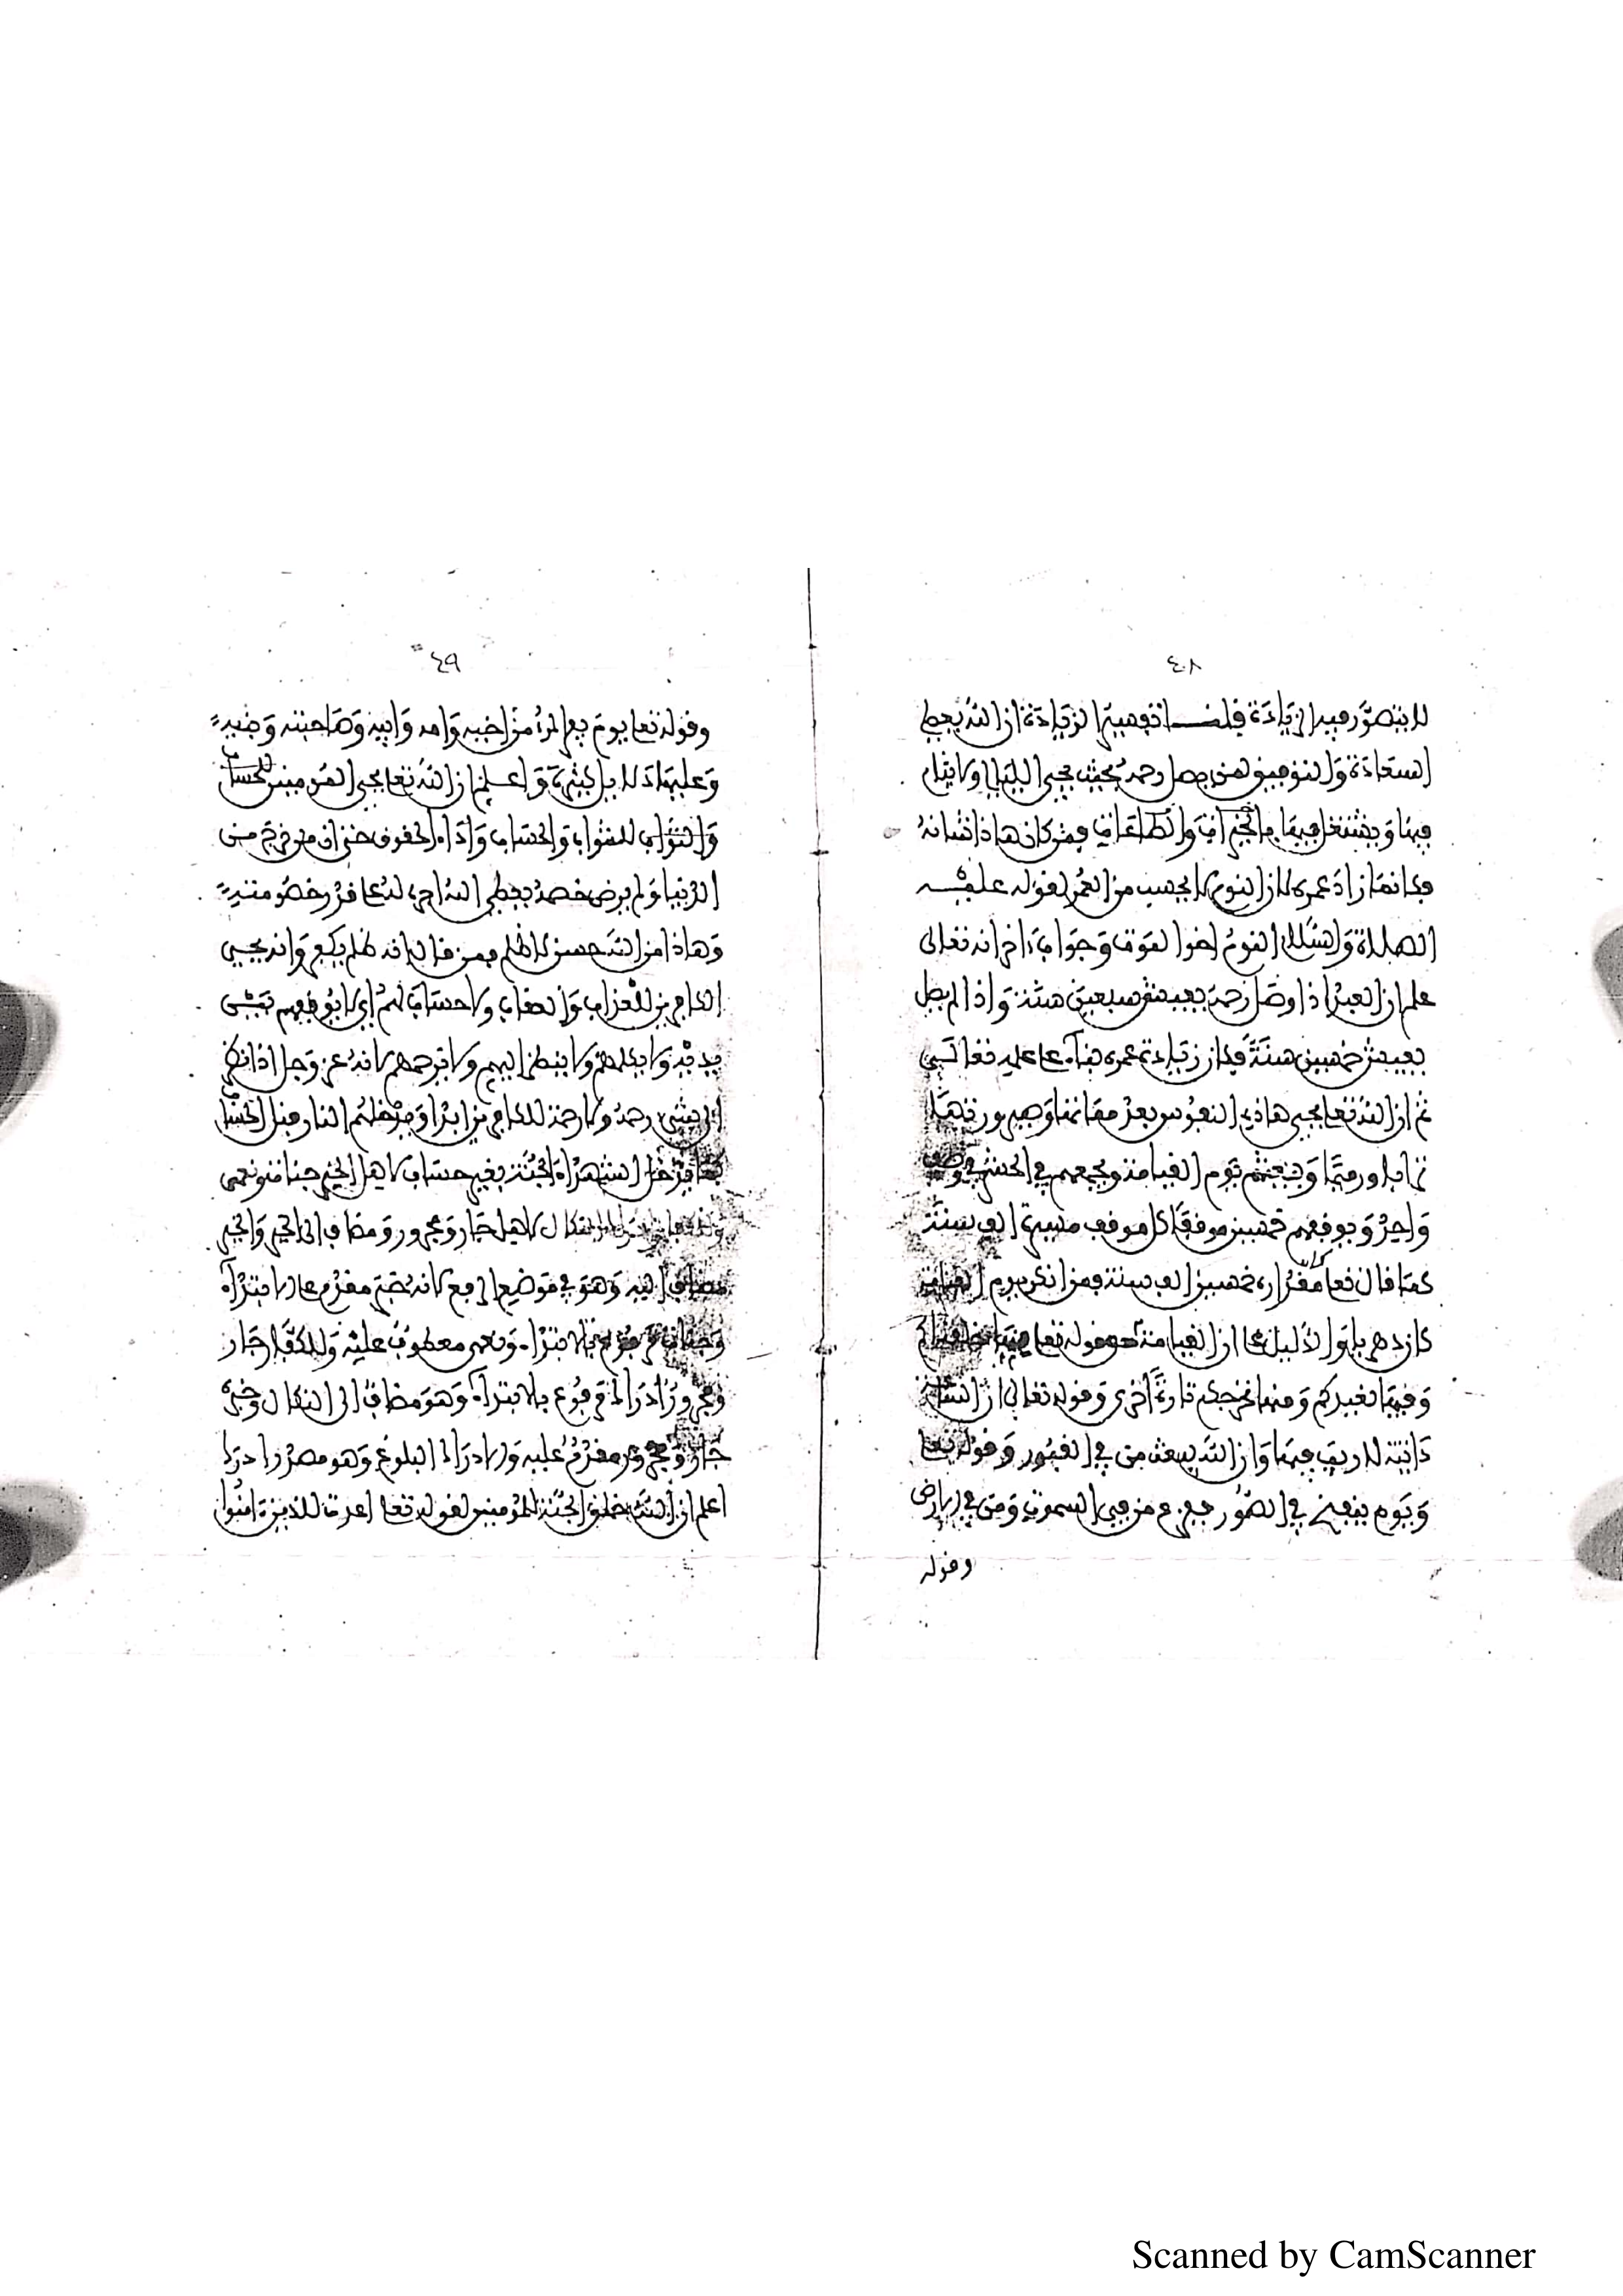 ٤٨
لا يتصور فيه الزيادة قلنا توهية الزيادة ان الله يعطي
السعادة والتوفيق لمن يصل رحمه بحيث يحيي الليالي ولا ينام
فيها ويشتغل فيها بالخيرات والطاعات فمن كان هاذا شانه
فكانما زاد عمره لان النوم لا يحسب من العمر لقوله عليه
الصلاة والسلام النوم اخو الموت وجواب ءاخر انه تعالى
علم ان العبد اذا وصل رحمه يعيش سبعين سنة واذا لم يصل
يعيش خمسين سنة فكان زيادة عمره بناء على علمه تعالى
ثم ان الله تعا يحيي هاذه النفوس بعد مماتها وصيرورتها
ترابا ورميما ويبعثهم يوم القيامة ويجمعهم في الحشر في
واحد ويوقفهم خمسين موقفا كل موقف مسيرة الف سنة
كما قال تعا كان مقداره خمسين الف سنة فمن انكر يوم القيامة
كان دهريا والدليل على ان القيامة حق قوله تعا منها خلقناكم
وفيها نعيدكم ومنها نخرجكم تارة اخرى وقوله تعالى ان الساعة
ءاتية لا ريب فيها وان الله يبعث من في القبور وقوله تعا
ويوم ينفخ في الصور ففزع من في السموت ومن في الارض
وقوله
٤٩
وقوله تعا يوم يفر المرء من اخيه وامه وابيه وصاحبته وبنيه
وعليها دلايل كثيرة واعلم ان الله تعا يحيي المومنين للحساب
والثواب للثواب والحساب واداء الحقوق حتى ان من خرج من
الدنيا ولم يرض خصمه يعطي الله اجر له على قدر خصومته
وهاذا من الله حسن لا ظلم فمن قال انه ظلم يكفر وانه يحيي
الكافرين للعذاب والعقاب ولا حساب لهم اي لا يوقفهم
يديه ولا يكلمهم ولا ينظر اليهم ولا يرحمهم لانه عز وجل اذا نظر
الى شيء رحمه ولا رحمة للكافرين ابدا ويدخلهم النار قبل الحساب
كما يدخل الشهداء الجنة بغير حساب لاهل الخير جنات ونعمى
وللكفار ادراك النكال لاهل جار ومجرور ومضاف الى الخير والخير
مضاف اليه وهو في موضع الرفع لانه خبر مقدم على الابتداء
وجنات مرفوع بالابتداء ونعمى معطوف عليه وللكفار جار
ومجرور ادراك مرفوع بالابتداء وهو مضاف الى النكال وخبره
جار ومجرور مقدم عليه والادراك البلوغ وهو مصدر ادرك
اعلم ان الله خلق الجنة للمومنين لقوله تعا اعدت للذين ءامنوا
Scanned by CamScanner